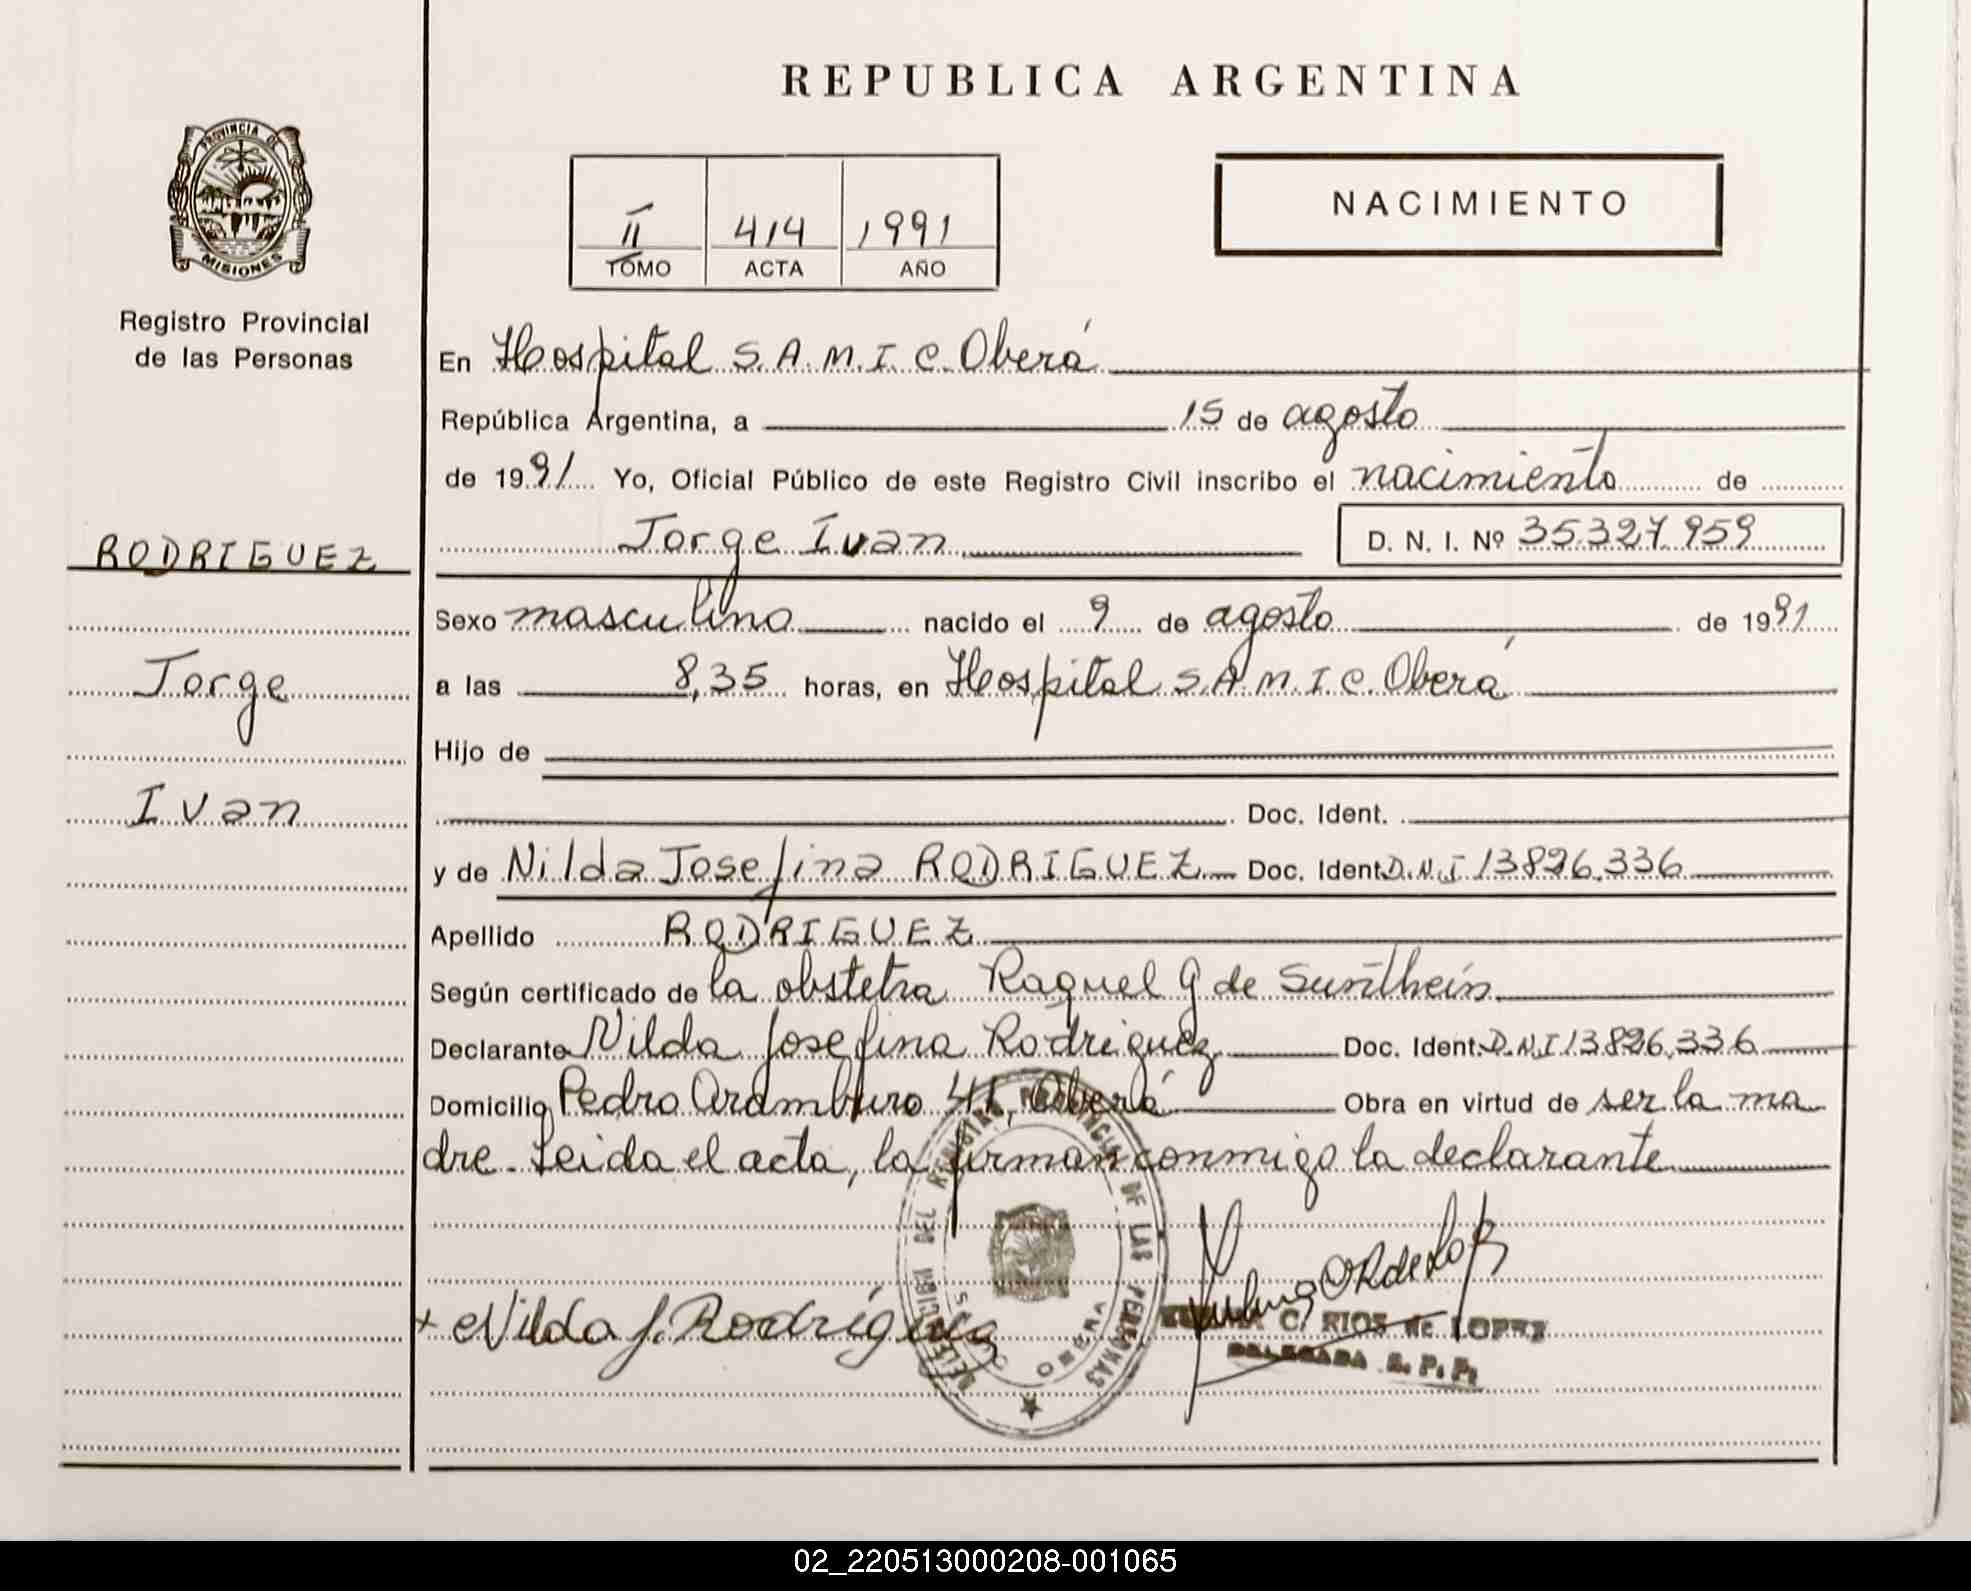 REPUBLICA ARGENTINA
PROVINCIA DE
MISIONES
Registro Provincial
de las Personas
II 414 1991
TOMO ACTA AÑO
NACIMIENTO
En Hospital S.A.M.I.C. Oberá
República Argentina, a 15 de agosto
de 1991 Yo, Oficial Público de este Registro Civil inscribo el nacimiento de
Jorge Ivan D. N. I. Nº 35.327.959
RODRIGUEZ
Jorge
Ivan
Sexo masculino nacido el 9 de agosto de 1991
a las 8,35 horas, en Hospital S.A.M.I.C. Oberá
Hijo de
Doc. Ident.
y de Nilda Josefina RODRIGUEZ Doc. Ident. D.N.I 13826.336
Apellido RODRIGUEZ
Según certificado de la obstetra Raquel G de
Declarante Nilda Josefina Rodriguez Doc. Ident. D.N.I 13826.336
Domicilio Pedro Aramburo Oberá Obra en virtud de ser la ma
dre. Leida el acta, la firman conmigo la declarante
REGISTRO PROVINCIAL DE LAS PERSONAS
DELEGACION DEL
OBERA
+ Nilda J. Rodríguez
C. RIOS de LOPEZ
DELEGADA R. P. P.
02_220513000208-001065